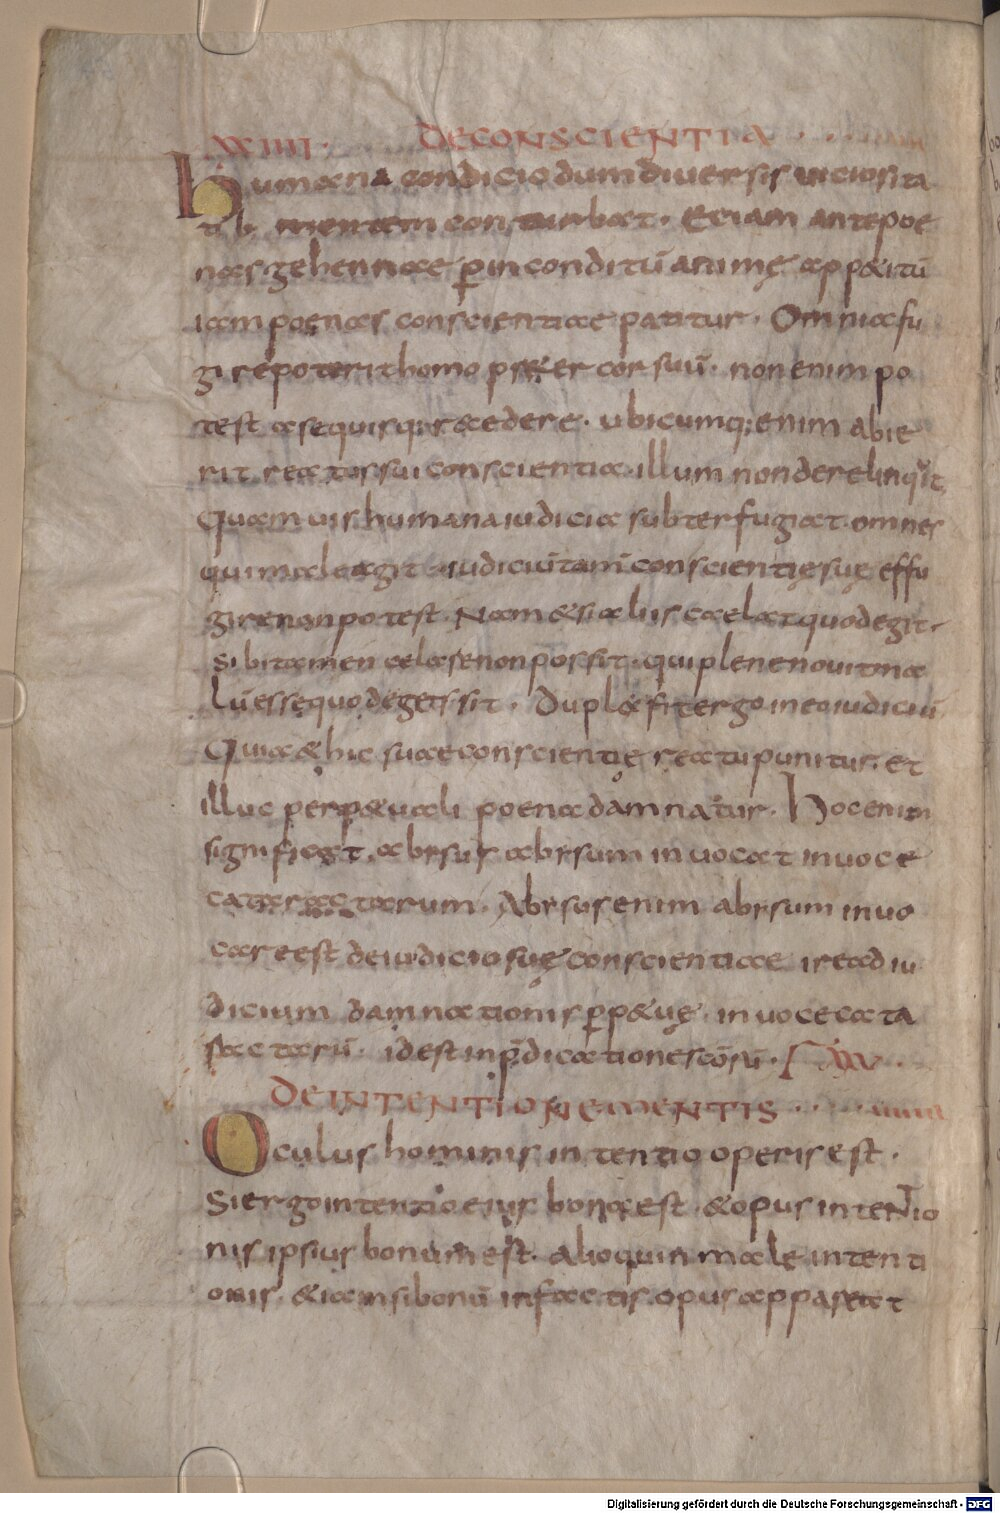 XXIIII. DECONSCIENTIA
humana condicio dum diuersis uiciosita
tib; mentem conturbat. Etiam ante poe
nas gehennae p̲ inconditū animę app&itū
iam poenas conscientiae patitur. Omnia fu
gire poterit homo pr&er cor suū. non enim po
test a se quisq; recedere. ubicumq; enim abie
rit reatus sui conscientia illum non derelinquit.
Quam uis humana iudicia subterfugiat omnes
qui male agit. iudiciū tam̄ conscientię suę effu
gire non potest. Nam & si aliis caelat quod egit.
Sibi tamen celare non possit. qui plene nouit ma
lū esse quod gessit. Duplex fit ergo in eo iudiciū
Quia & hic suae conscientię reatu punitur. et
illuc perp&uali poena damnatur. hoc enim
significat. abyssus abyssum inuocat in uoce
cataractarum. Abyssus enim abyssum inuo
care est de iudicio suę conscientiae ire ad iu
dicium damnationis p̲p&uę. in uoce cata
ractarū. id est in p̄dicatione sc̄orū. XXV
DE INTENTIONE MENTIS
Oculus hominis intentio operis est.
Si ergo intentio eius bona est. & opus intentio
nis ipsius bonum est. alioquin male intenti
onis. & iam si bonū in factis opus appareat
Digitalisierung gefördert durch die Deutsche Forschungsgemeinschaft - DFG